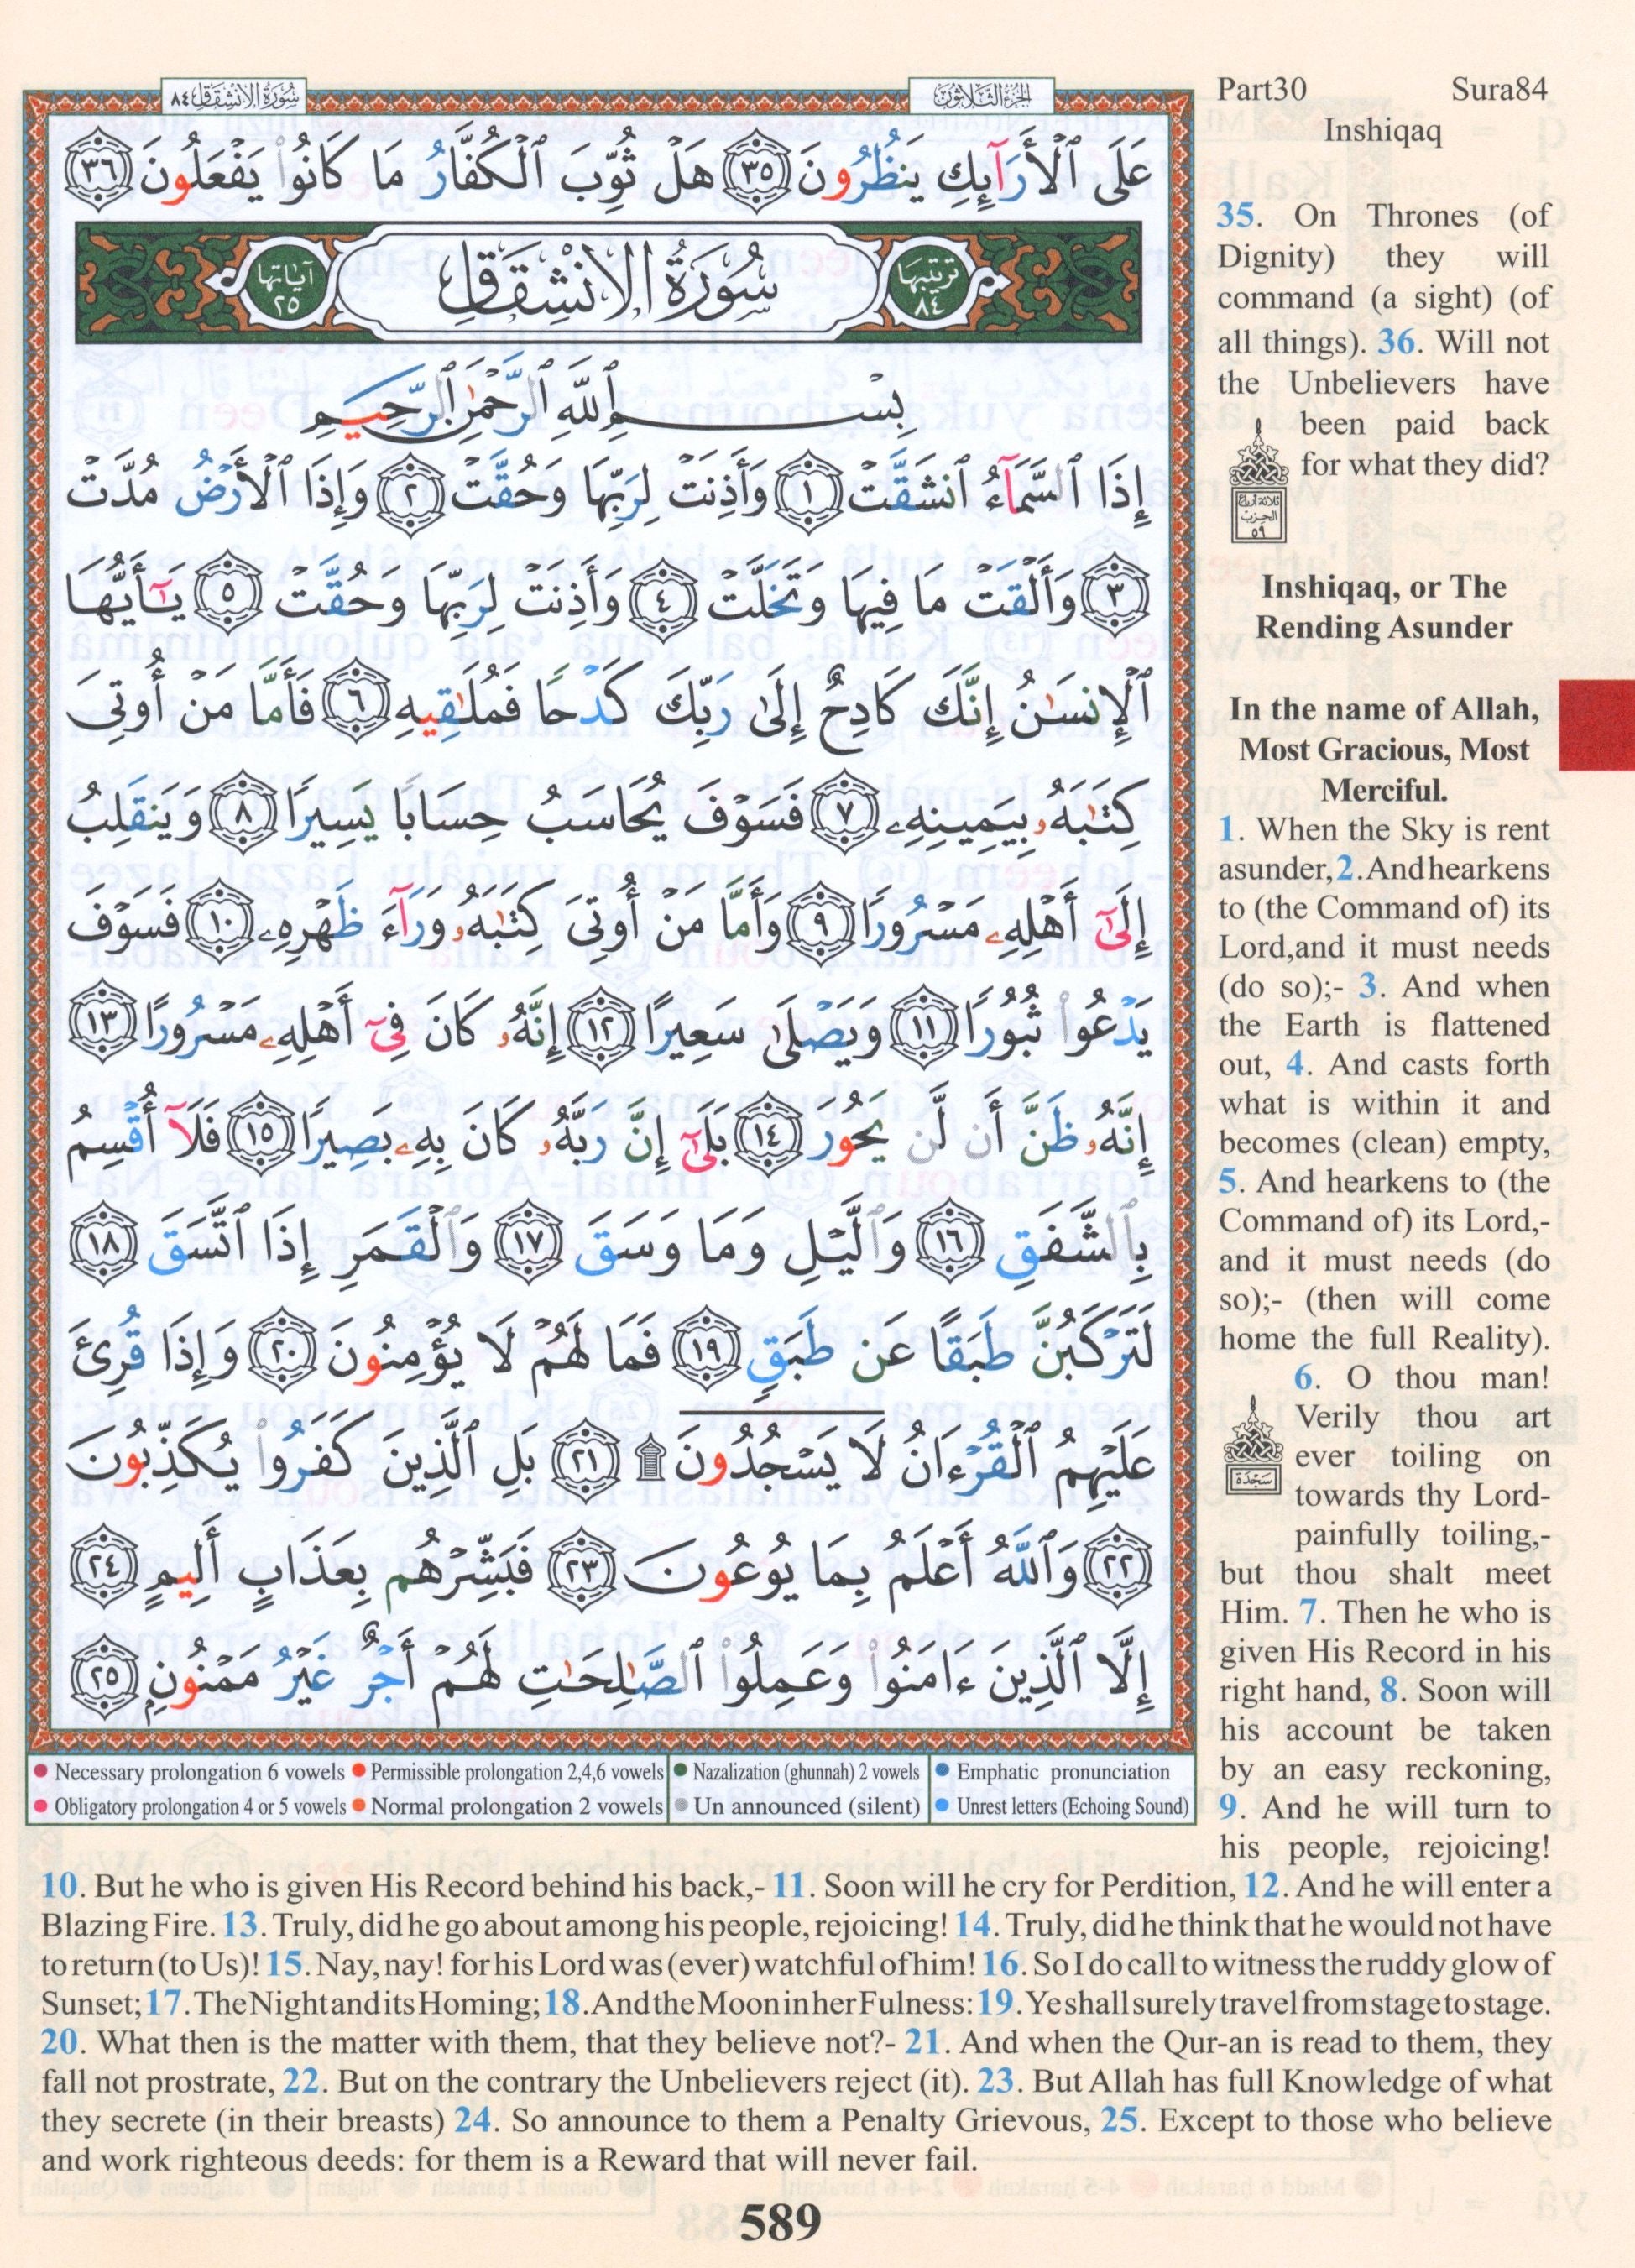 سُورَةُ الانشِقَاقِ ٨٤
الجُزءُ الثَّلَاثُونَ
عَلَى ٱلْأَرَآئِكِ يَنظُرُونَ ٣٥ هَلْ ثُوِّبَ ٱلْكُفَّارُ مَا كَانُوا۟ يَفْعَلُونَ ٣٦
ترتيبها ٨٤
سُورَةُ الانْشِقَاقِ
آياتها ٢٥
بِسْمِ ٱللَّهِ ٱلرَّحْمَٰنِ ٱلرَّحِيمِ
إِذَا ٱلسَّمَآءُ ٱنشَقَّتْ ١ وَأَذِنَتْ لِرَبِّهَا وَحُقَّتْ ٢ وَإِذَا ٱلْأَرْضُ مُدَّتْ
٣ وَأَلْقَتْ مَا فِيهَا وَتَخَلَّتْ ٤ وَأَذِنَتْ لِرَبِّهَا وَحُقَّتْ ٥ يَٰٓأَيُّهَا
ٱلْإِنسَٰنُ إِنَّكَ كَادِحٌ إِلَىٰ رَبِّكَ كَدْحًا فَمُلَٰقِيهِ ٦ فَأَمَّا مَنْ أُوتِىَ
كِتَٰبَهُۥ بِيَمِينِهِۦ ٧ فَسَوْفَ يُحَاسَبُ حِسَابًا يَسِيرًا ٨ وَيَنقَلِبُ
إِلَىٰٓ أَهْلِهِۦ مَسْرُورًا ٩ وَأَمَّا مَنْ أُوتِىَ كِتَٰبَهُۥ وَرَآءَ ظَهْرِهِۦ ١٠ فَسَوْفَ
يَدْعُوا۟ ثُبُورًا ١١ وَيَصْلَىٰ سَعِيرًا ١٢ إِنَّهُۥ كَانَ فِىٓ أَهْلِهِۦ مَسْرُورًا ١٣
إِنَّهُۥ ظَنَّ أَن لَّن يَحُورَ ١٤ بَلَىٰٓ إِنَّ رَبَّهُۥ كَانَ بِهِۦ بَصِيرًا ١٥ فَلَآ أُقْسِمُ
بِٱلشَّفَقِ ١٦ وَٱلَّيْلِ وَمَا وَسَقَ ١٧ وَٱلْقَمَرِ إِذَا ٱتَّسَقَ ١٨
لَتَرْكَبُنَّ طَبَقًا عَن طَبَقٍ ١٩ فَمَا لَهُمْ لَا يُؤْمِنُونَ ٢٠ وَإِذَا قُرِئَ
عَلَيْهِمُ ٱلْقُرْءَانُ لَا يَسْجُدُونَ ۩ ٢١ بَلِ ٱلَّذِينَ كَفَرُوا۟ يُكَذِّبُونَ
٢٢ وَٱللَّهُ أَعْلَمُ بِمَا يُوعُونَ ٢٣ فَبَشِّرْهُم بِعَذَابٍ أَلِيمٍ ٢٤
إِلَّا ٱلَّذِينَ ءَامَنُوا۟ وَعَمِلُوا۟ ٱلصَّٰلِحَٰتِ لَهُمْ أَجْرٌ غَيْرُ مَمْنُونٍ ٢٥
● Necessary prolongation 6 vowels ● Permissible prolongation 2,4,6 vowels ● Nazalization (ghunnah) 2 vowels ● Emphatic pronunciation
● Obligatory prolongation 4 or 5 vowels ● Normal prolongation 2 vowels ● Un announced (silent) ● Unrest letters (Echoing Sound)
Part30 Sura84
Inshiqaq
35. On Thrones (of
Dignity) they will
command (a sight) (of
all things). 36. Will not
the Unbelievers have
been paid back
for what they did?
ثلاثة أرباع
الحزب
٥٩
Inshiqaq, or The
Rending Asunder
In the name of Allah,
Most Gracious, Most
Merciful.
1. When the Sky is rent
asunder, 2. And hearkens
to (the Command of) its
Lord,and it must needs
(do so);- 3. And when
the Earth is flattened
out, 4. And casts forth
what is within it and
becomes (clean) empty,
5. And hearkens to (the
Command of) its Lord,-
and it must needs (do
so);- (then will come
home the full Reality).
6. O thou man!
Verily thou art
ever toiling on
سَجْدَة
towards thy Lord-
painfully toiling,-
but thou shalt meet
Him. 7. Then he who is
given His Record in his
right hand, 8. Soon will
his account be taken
by an easy reckoning,
9. And he will turn to
his people, rejoicing!
10. But he who is given His Record behind his back,- 11. Soon will he cry for Perdition, 12. And he will enter a
Blazing Fire. 13. Truly, did he go about among his people, rejoicing! 14. Truly, did he think that he would not have
to return (to Us)! 15. Nay, nay! for his Lord was (ever) watchful of him! 16. So I do call to witness the ruddy glow of
Sunset; 17. The Night and its Homing; 18. And the Moon in her Fulness: 19. Ye shall surely travel from stage to stage.
20. What then is the matter with them, that they believe not?- 21. And when the Qur-an is read to them, they
fall not prostrate, 22. But on the contrary the Unbelievers reject (it). 23. But Allah has full Knowledge of what
they secrete (in their breasts) 24. So announce to them a Penalty Grievous, 25. Except to those who believe
and work righteous deeds: for them is a Reward that will never fail.
589